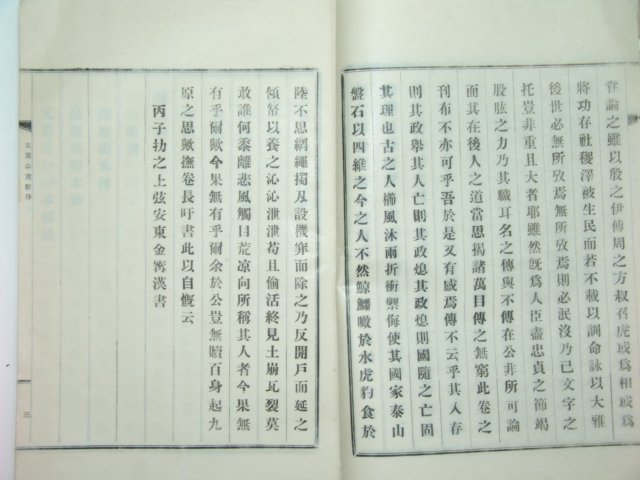 甞論之雖以殷之伊傅周之方叔召虎或爲相或爲
將功存社稷澤被生民而若不載以訓命詠以大雅
後世必無所攷焉無所攷焉則必泯沒乃已文字之
托豈非重且大者耶雖然旣爲人臣盡忠貞之節竭
股肱之力乃其職耳名之傳與不傳在公非所可論
而其在後人之道當思揭諸萬目傳之無窮此卷之
刊布不亦可乎吾於是又有感焉傳不云乎其人存
則其政擧其人亡則其政熄其政熄則國隨之亡固
其理也古之人櫛風沐雨折衝禦侮使其國家泰山
盤石以四維之今之人不然鯨鱷噉於水虎豹食於
陸不思網繩擉及設機穽而除之乃反開戶而延之
傾帑以養之沁沁泄泄苟且偸活終見土崩瓦裂莫
敢誰何黍離悲風觸目荒凉向所稱其人者今果無
有乎爾歟今果無有乎爾余於公豈無贖百身起九
原之思歟撫卷長吁書此以自慨云
丙子㧕之上弦安東金甯漢書
實記序
三